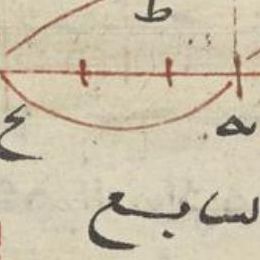 ط
ح ه
لسابع